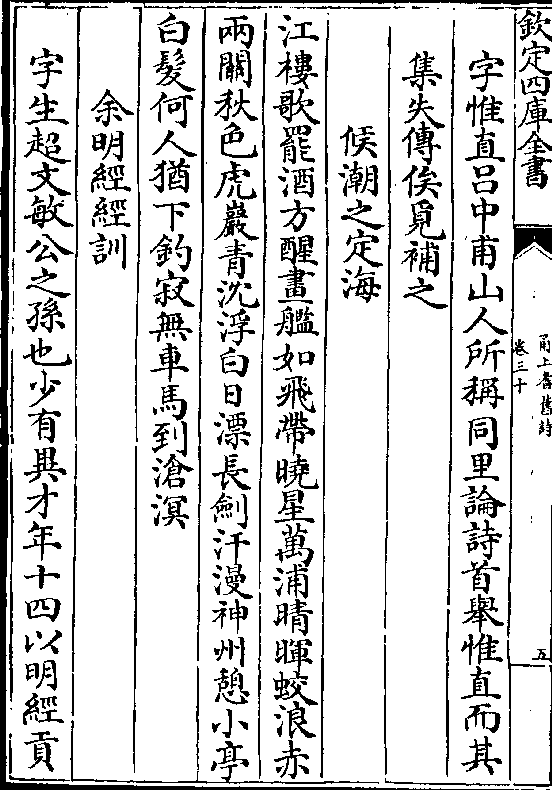 欽定四庫全書
甬上耆舊詩
卷三十
五
字惟直呂中甫山人所稱同里論詩首舉惟直而其
集失傳俟覓補之
候潮之定海
江樓歌罷酒方醒畫艦如飛帶曉星萬浦晴暉蛟浪赤
兩關秋色虎巖青沈浮白日漂長劍汗漫神州憩小亭
白髮何人猶下釣寂無車馬到滄溟
余明經經訓
字生超文敏公之孫也少有異才年十四以明經貢